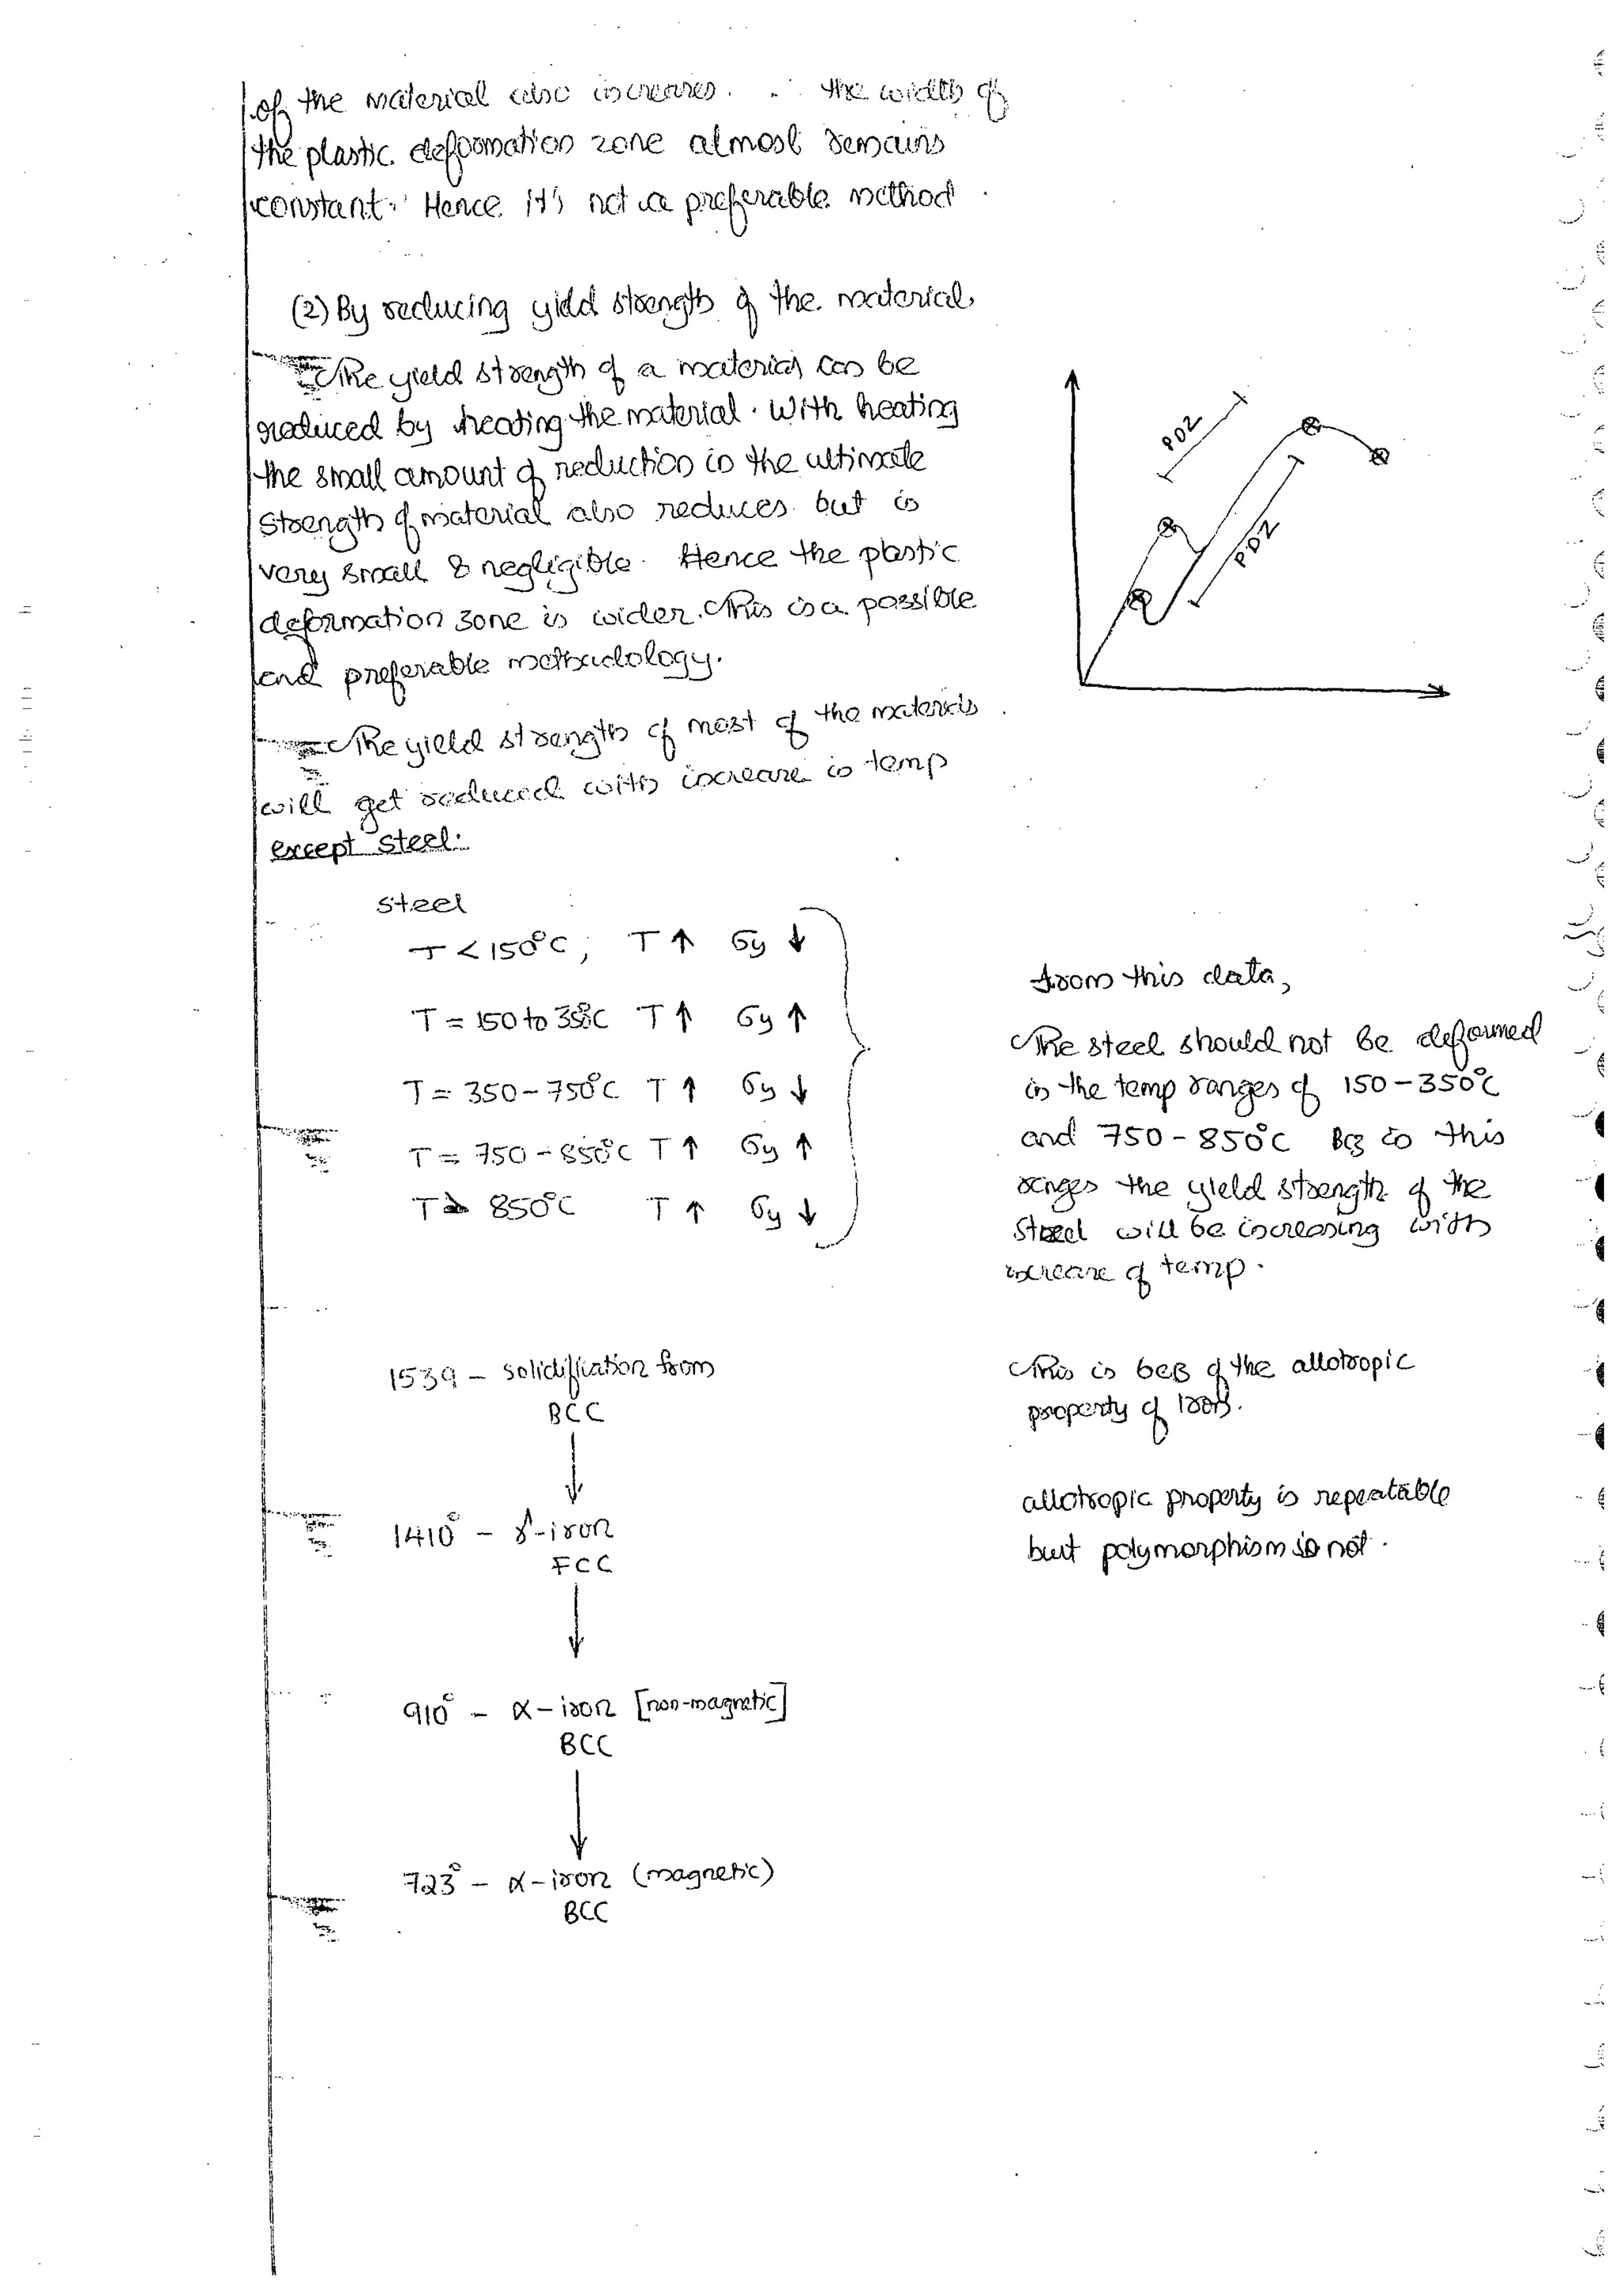 of the material also increases. ∴ the width of
the plastic deformation zone almost remains
constant. Hence it's not a preferable method.
(2) By reducing yield strength of the material
The yield strength of a material can be
reduced by heating the material. With heating
the small amount of reduction in the ultimate
strength of material also reduces but is
very small & negligible. Hence the plastic
deformation zone is wider. This is a possible
and preferable methodology.
PDZ
PDZ
The yield strength of most of the materials
will get reduced with increase in temp
except steel.
steel
T < 150°C, T ↑ σy ↓
T = 150 to 350°C T ↑ σy ↑
T = 350 - 750°C T ↑ σy ↓
T = 750 - 850°C T ↑ σy ↑
T > 850°C T ↑ σy ↓
from this data,
The steel should not be deformed
in the temp ranges of 150 - 350°C
and 750 - 850°C Bcz in this
ranges the yield strength of the
steel will be increasing with
increase of temp.
1539 - solidifiation from
BCC
↓
1410° - γ-iron
FCC
↓
910° - α-iron [non-magnetic]
BCC
↓
723° - α-iron (magnetic)
BCC
This is bcz of the allotropic
property of Iron.
allotropic property is repeatable
but polymorphism is not.